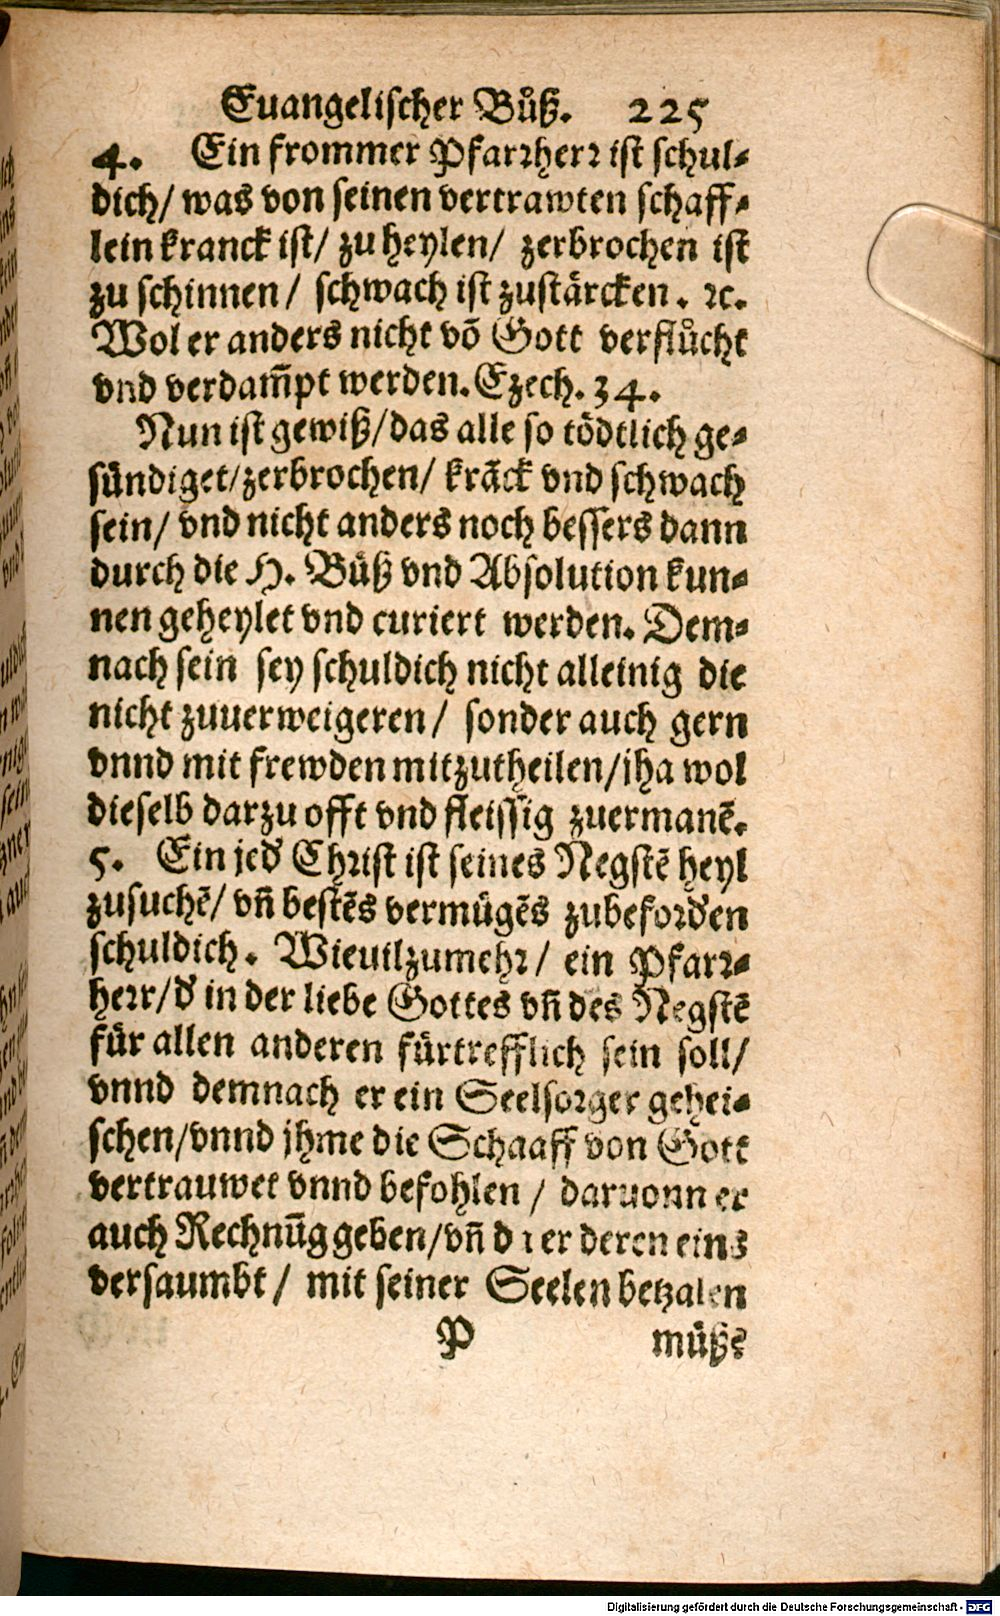 Euangelischer Bůß. 225
4. Ein frommer Pfarꝛherꝛ ist schul⸗
dich/ was von seinen vertrawten schaff⸗
lein kranck ist/ zu heylen/ zerbrochen ist
zu schinnen/ schwach ist zustärcken. ꝛc.
Wol er anders nicht võ Gott verflůcht
vnd verdam̃pt werden. Ezech. 34.
Nun ist gewiß/ das alle so tödtlich ge⸗
sündiget/ zerbrochen/ krãck vnd schwach
sein/ vnd nicht anders noch bessers dann
durch die H. Bůß vnd Absolution kun⸗
nen geheylet vnd curiert werden. Dem⸗
nach sein sey schuldich nicht alleinig die
nicht zuuerweigeren/ sonder auch gern
vnnd mit frewden mitzutheilen/ jha wol
dieselb darzu offt vnd fleissig zuermanẽ.
5. Ein jed Christ ist seines Negstẽ heyl
zusuchẽ/ vñ bestẽs vermügẽs zubefoꝛden
schuldich. Wieuilzumehꝛ/ ein Pfarꝛ⸗
herꝛ/ d in der liebe Gottes vñ des Negstẽ
für allen anderen fürtrefflich sein soll/
vnnd demnach er ein Seelsoꝛger gehei⸗
schen/ vnnd jhme die Schaaff von Gott
vertrauwet vnnd befohlen/ daruonn er
auch Rechnũg geben/ vñ er deren eins
versaumbt/ mit seiner Seelen betzalen
P müße
Digitalisierung gefördert durch die Deutsche Forschungsgemeinschaft - DFG